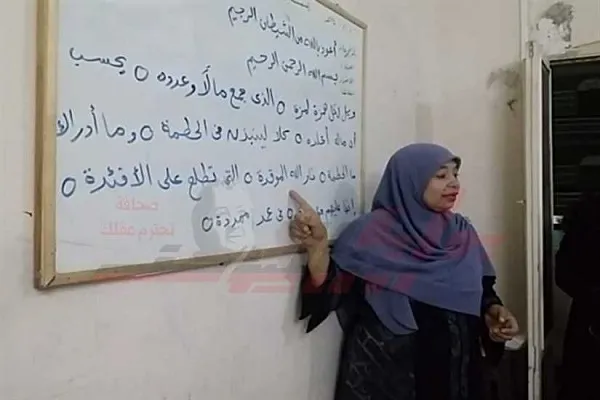 أعوذ بالله من الشيطان الرجيم
بسم الله الرحمن الرحيم
ويل لكل همزة لمزة ٥ الذى جمع مالًا وعدده ٥ يحسب
أن ماله أخلده ٥ كلا لينبذن فى الحطمة ٥ وما أدراك
ما الحطمة ٥ نار الله الموقدة ٥ التى تطلع على الأفئدة ٥
إنها عليهم ٥ فى عمد ممددة ٥
صحافة
تحترم عقلك